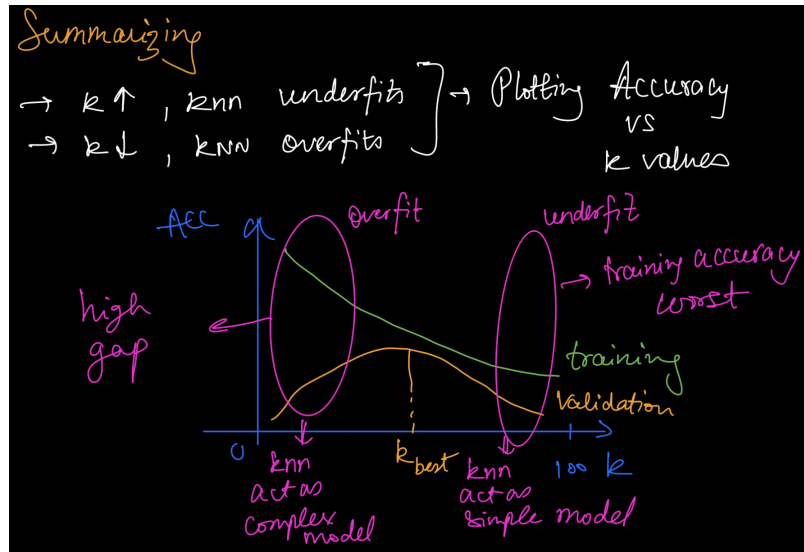 Summarizing
→ k ↑ , knn underfits
→ k ↓ , kNN overfits
→ Plotting Accuracy
vs
k values
Acc
overfit
underfit
high
gap
→ training accuracy
worst
training
validation
0
k best
100 k
knn
act as
complex
model
knn
act as
simple model